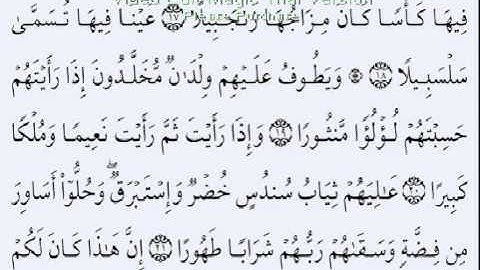 فِيهَا كَأْسًا كَانَ مِزَاجُهَا زَنجَبِيلًا ١٧ عَيْنًا فِيهَا تُسَمَّىٰ
سَلْسَبِيلًا ١٨ ۞ وَيَطُوفُ عَلَيْهِمْ وِلْدَٰنٌ مُّخَلَّدُونَ إِذَا رَأَيْتَهُمْ
حَسِبْتَهُمْ لُؤْلُؤًا مَّنثُورًا ١٩ وَإِذَا رَأَيْتَ ثَمَّ رَأَيْتَ نَعِيمًا وَمُلْكًا
كَبِيرًا ٢٠ عَـٰلِيَهُمْ ثِيَابُ سُندُسٍ خُضْرٌ وَإِسْتَبْرَقٌ ۖ وَحُلُّوٓا۟ أَسَاوِرَ
مِن فِضَّةٍ وَسَقَىٰهُمْ رَبُّهُمْ شَرَابًا طَهُورًا ٢١ إِنَّ هَـٰذَا كَانَ لَكُمْ